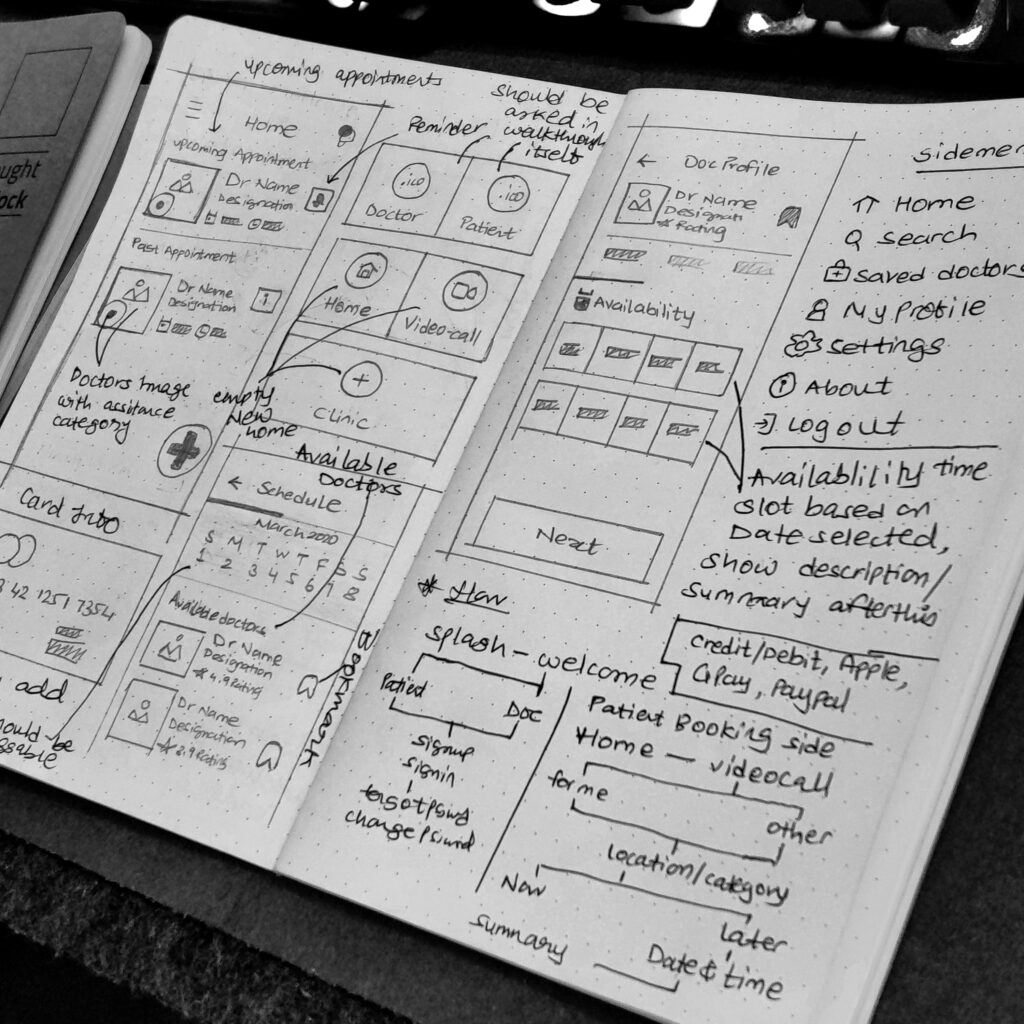 ught
ock
upcoming appointments
Home
upcoming Appointment
Dr Name
Designation
Past Appointment
Dr Name
Designation
i
Doctors Image
with assistance
category
Card Info
42 1251 7354
add
ould be
Reminder
should be
asked in
walkthrough
itself
.ico
Doctor
.ico
Patient
Home
Video-call
Clinic
empty
New
home
Available
Doctors
Schedule
March 2020
S M T W T F S S
1 2 3 4 5 6 7 8
Available doctors
Dr Name
Designation
4.9 Rating
Dr Name
Designation
2.9 Rating
Bookmark
Doc Profile
Dr Name
Designan
Rating
Availability
Next
sidemen
Home
search
saved doctors
My Profile
settings
About
logout
Availablility time
slot based on
Date selected,
show description/
summary after this
credit/Debit, Apple,
GPay, paypal
* Flow
splash - welcome
Patient
Doc
signup
signin
change
Patient Booking side
Home - videocall
for me
other
location/category
Now
later
summary
Date & time